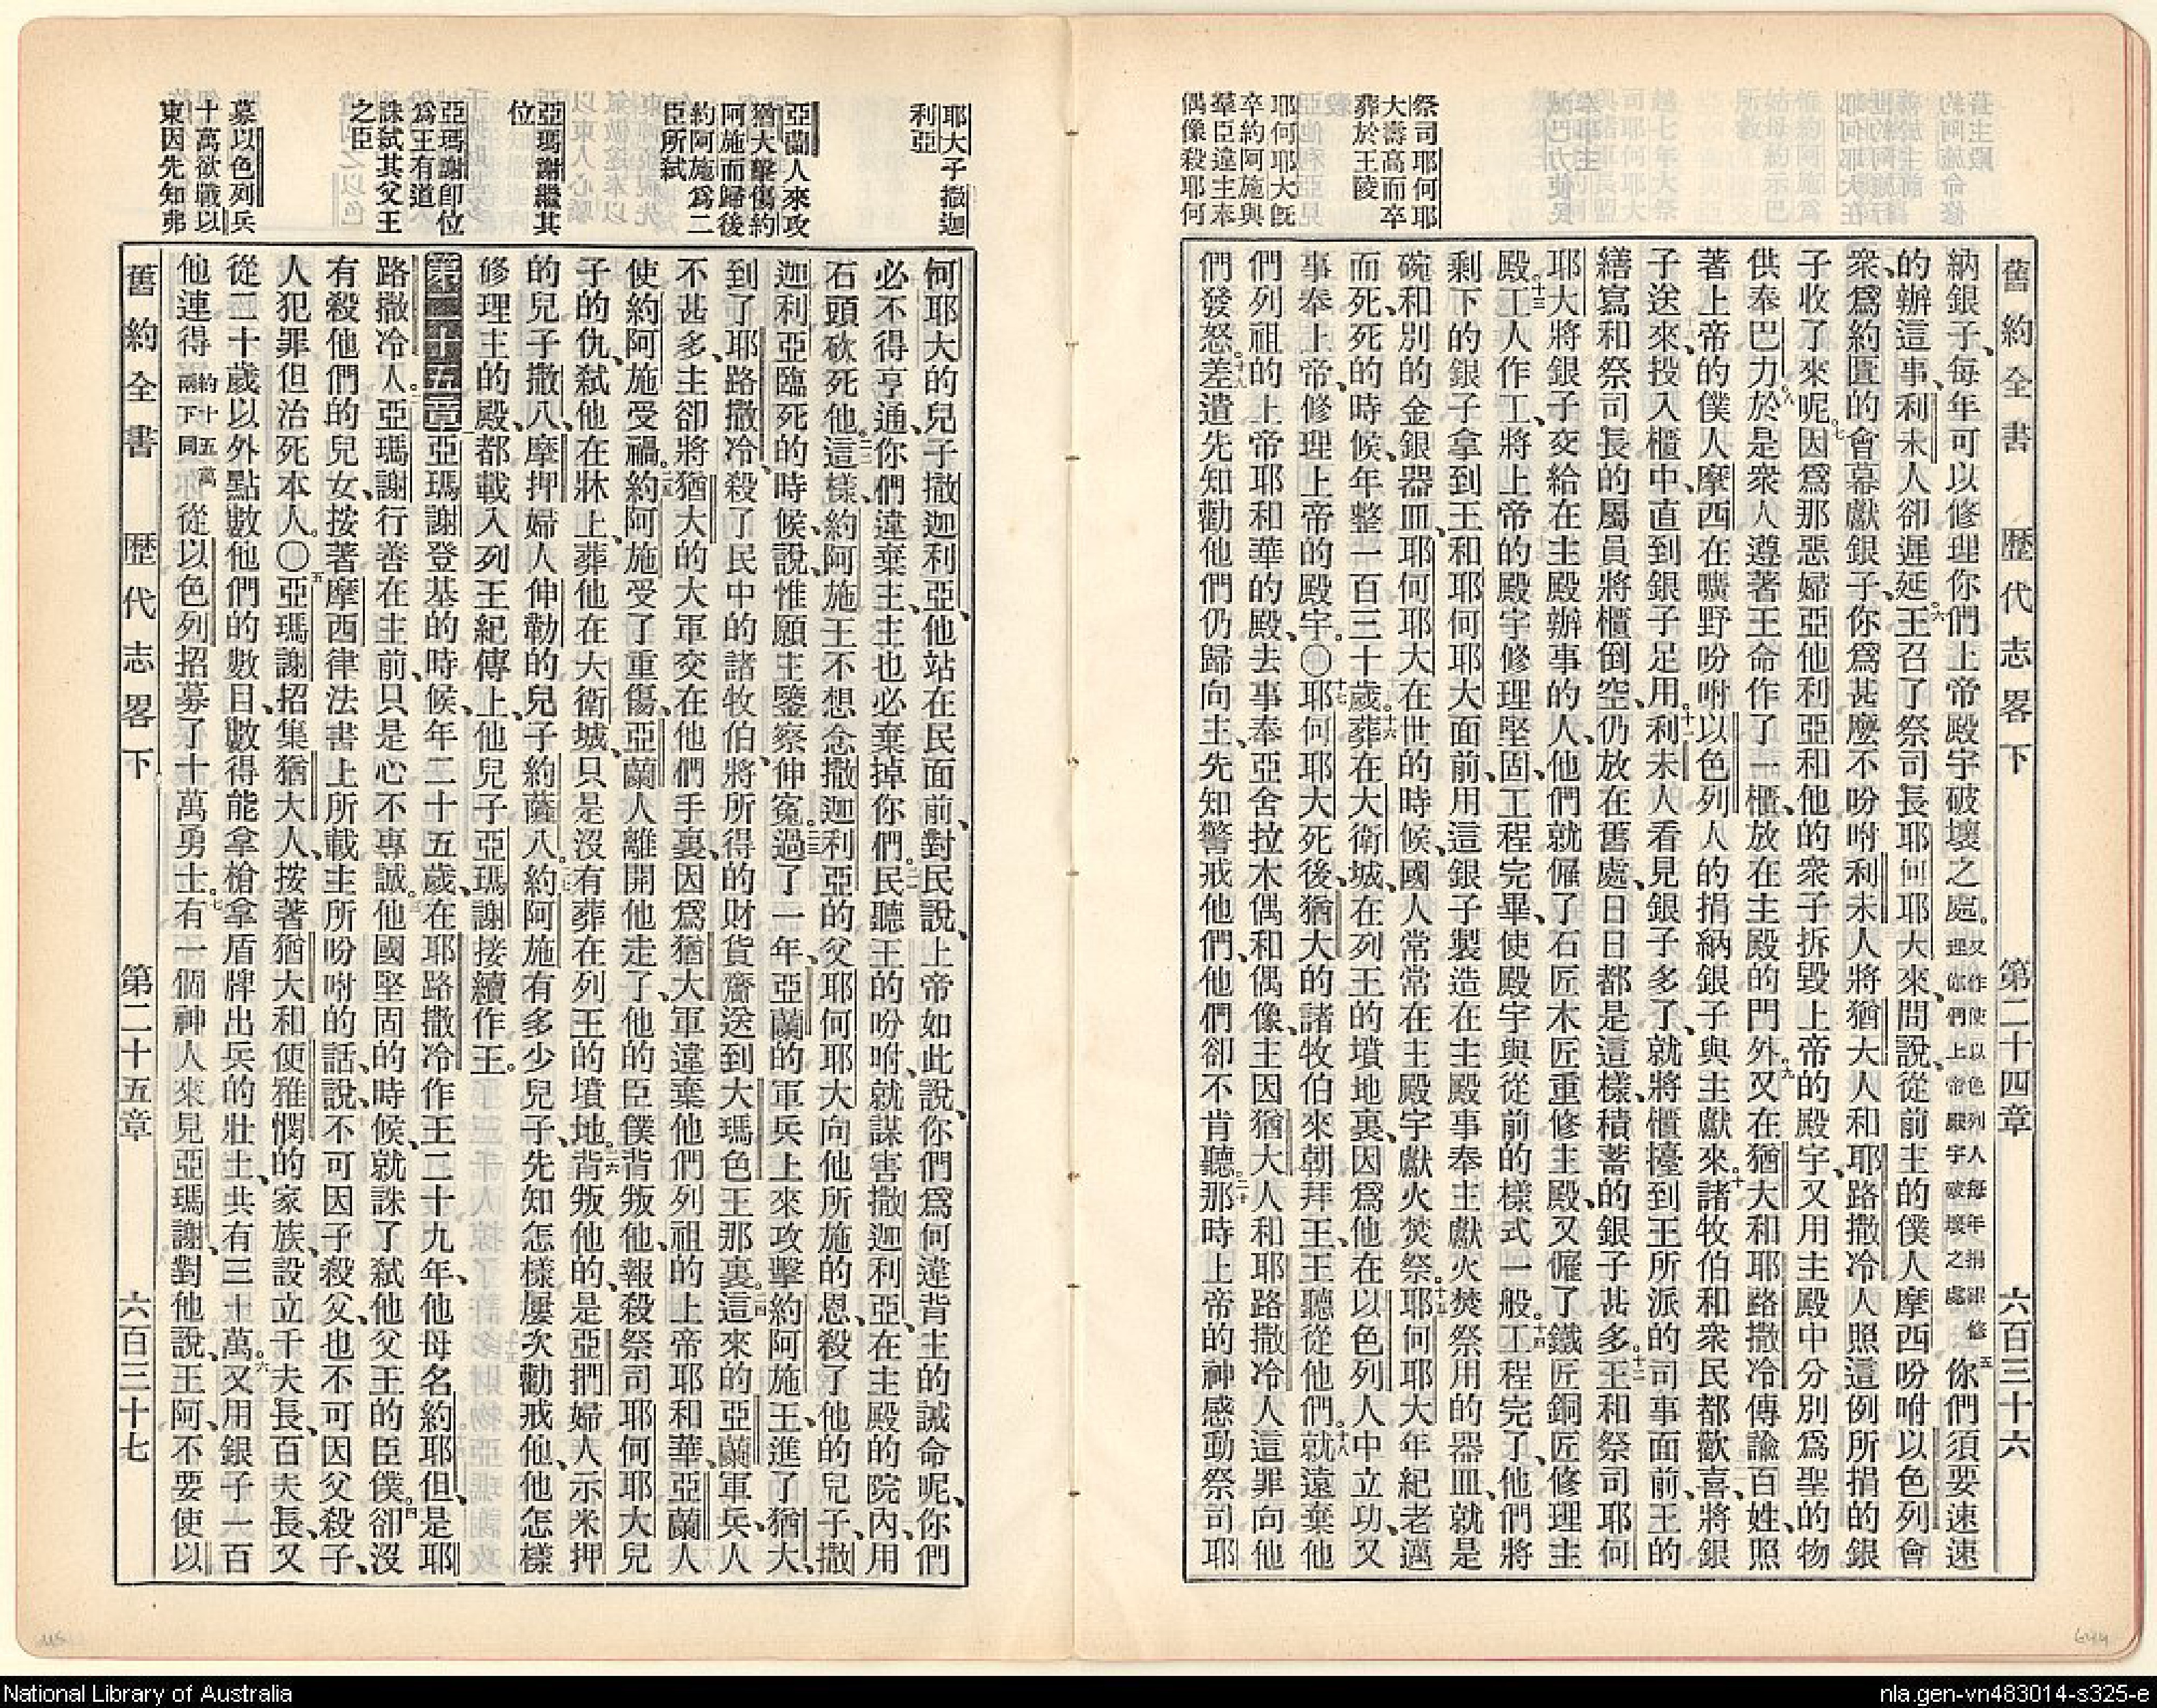 舊約全書 歷代志畧下 第二十四章 六百三十六
祭司耶何耶
大壽高而卒
葬於王陵
耶何耶大旣
卒約阿施與
羣臣違主奉
偶像殺耶何
納銀子、每年可以修理你們上帝殿宇破壞之處。又作使以色列人每年捐銀修理你們上帝殿宇破壞之處五你們須要速速
的辦這事、利未人卻遲延。六王召了祭司長耶何耶大來、問說、從前主的僕人摩西吩咐以色列會
衆、爲約匱的會幕獻銀子、你爲甚麼不吩咐利未人將猶大人和耶路撒冷人照這例所捐的銀
子收了來呢。七因爲那惡婦亞他利亞和他的衆子拆毀上帝的殿宇、又用主殿中分別爲聖的物
供奉巴力。八於是衆人遵著王命作了一櫃、放在主殿的門外。九又在猶大和耶路撒冷傳諭百姓、照
著上帝的僕人摩西在曠野吩咐以色列人的捐納銀子、與主獻來。十諸牧伯和衆民都歡喜、將銀
子送來、投入櫃中、直到銀子足用。十一利未人看見銀子多了、就將櫃擡到王所派的司事面前、王的
繕寫和祭司長的屬員將櫃倒空、仍放在舊處、日日都是這樣、積蓄的銀子甚多。十二王和祭司耶何
耶大將銀子交給在主殿辦事的人、他們就僱了石匠木匠重修主殿、又僱了鐵匠銅匠修理主
殿。十三工人作工、將上帝的殿宇修理堅固、工程完畢、使殿宇與從前的樣式一般。十四工程完了、他們將
剩下的銀子拿到王和耶何耶大面前、用這銀子製造在主殿事奉主獻火焚祭用的器皿、就是
碗和別的金銀器皿、耶何耶大在世的時候、國人常常在主殿宇獻火焚祭。十五耶何耶大年紀老邁
而死、死的時候、年整一百三十歲。十六葬在大衛城、在列王的墳地裏、因爲他在以色列人中立功、又
事奉上帝、修理上帝的殿宇。〇十七耶何耶大死後、猶大的諸牧伯來朝拜王、王聽從他們。十八就遠棄他
們列祖的上帝耶和華的殿、去事奉亞舍拉木偶和偶像、主因猶大人和耶路撒冷人這罪向他
們發怒。十九差遣先知勸他們仍歸向主、先知警戒他們、他們卻不肯聽。二十那時上帝的神感動祭司耶
耶大子撒迦
利亞
亞蘭人來攻
猶大擊傷約
阿施而歸後
約阿施爲二
臣所弒
亞瑪謝繼其
位
亞瑪謝卽位
爲王有道
誅弒其父王
之臣
募以色列兵
十萬欲戰以
東因先知弗
何耶大的兒子撒迦利亞、他站在民面前、對民說、上帝如此說、你們爲何違背主的誡命呢、你們
必不得亨通、你們違棄主、主也必棄掉你們。二一民聽王的吩咐、就謀害撒迦利亞、在主殿的院內、用
石頭砍死他。二二這樣、約阿施王不想念撒迦利亞的父耶何耶大向他所施的恩、殺了他的兒子、撒
迦利亞臨死的時候、說、惟願主鑒察伸寃。二三過了一年、亞蘭的軍兵上來攻擊約阿施王、進了猶大、
到了耶路撒冷、殺了民中的諸牧伯、將所得的財貨齎送到大瑪色王那裏。二四這來的亞蘭軍兵、人
不甚多、主卻將猶大的大軍交在他們手裏、因爲猶大軍違棄他們列祖的上帝耶和華、亞蘭人
使約阿施受禍。二五約阿施受了重傷、亞蘭人離開他走了、他的臣僕背叛他、報殺祭司耶何耶大兒
子的仇、弒他在牀上、葬他在大衛城、只是沒有葬在列王的墳地。二六背叛他的、是亞捫婦人示米押
的兒子撒八、摩押婦人伸勒的兒子約薩八。二七約阿施有多少兒子、先知怎樣屢次勸戒他、他怎樣
修理主的殿、都載入列王紀傳上、他兒子亞瑪謝接續作王。
第二十五章 一亞瑪謝登基的時候、年二十五歲、在耶路撒冷作王二十九年、他母名約耶但、是耶
路撒冷人。二亞瑪謝行善在主前、只是心不專誠。三他國堅固的時候、就誅了弒他父王的臣僕。四卻沒
有殺他們的兒女、按著摩西律法書上所載主所吩咐的話、說、不可因子殺父、也不可因父殺子、
人犯罪但治死本人。〇五亞瑪謝招集猶大人、按著猶大和便雅憫的家族、設立千夫長、百夫長、又
從二十歲以外點數他們的數目、數得能拿槍拿盾牌出兵的壯士、共有三十萬。六又用銀子一百
他連得約十五萬兩下同從以色列招募了十萬勇士。七有一個神人來見亞瑪謝、對他說、王阿、不要使以
舊約全書 歷代志畧下 第二十五章 六百三十七
National Library of Australia
nla.gen-vn483014-s325-e